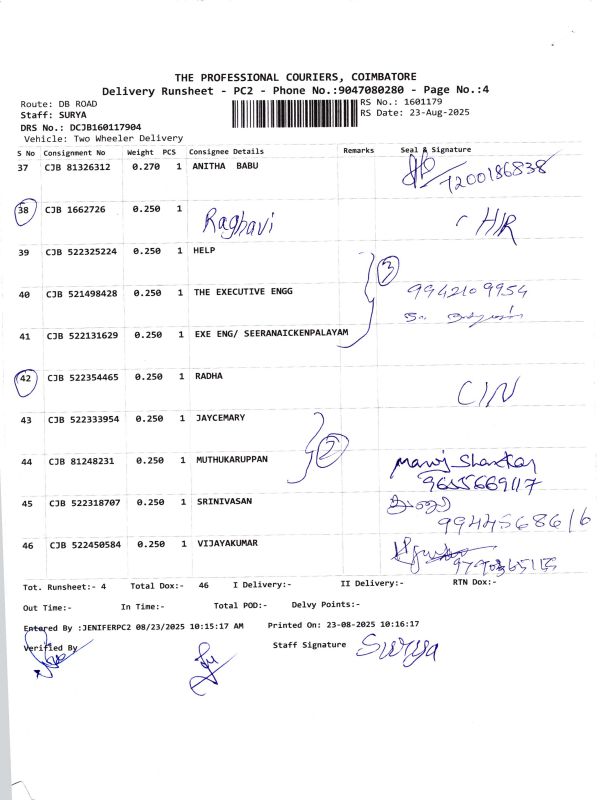 THE PROFESSIONAL COURIERS, COIMBATORE
Delivery Runsheet - PC2 - Phone No.:9047080280 - Page No.:4
Route: DB ROAD
RS No.: 1601179
Staff: SURYA
RS Date: 23-Aug-2025
DRS No.: DCJB160117904
Vehicle: Two Wheeler Delivery
S No Consignment No Weight PCS Consignee Details Remarks Seal & Signature
37 CJB 81326312 0.270 1 ANITHA BABU
7200186838
38 CJB 1662726 0.250 1 Raghavi
39 CJB 522325224 0.250 1 HELP
3
40 CJB 521498428 0.250 1 THE EXECUTIVE ENGG 9942109954
41 CJB 522131629 0.250 1 EXE ENG/ SEERANAICKENPALAYAM
42 CJB 522354465 0.250 1 RADHA
43 CJB 522333954 0.250 1 JAYCEMARY
2
44 CJB 81248231 0.250 1 MUTHUKARUPPAN Manoj Shankar
9655669117
45 CJB 522318707 0.250 1 SRINIVASAN
9944568616
46 CJB 522450584 0.250 1 VIJAYAKUMAR
Tot. Runsheet:- 4 Total Dox:- 46 I Delivery:- II Delivery:- RTN Dox:-
Out Time:- In Time:- Total POD:- Delvy Points:-
Entered By :JENIFERPC2 08/23/2025 10:15:17 AM Printed On: 23-08-2025 10:16:17
Verified By Staff Signature Surya